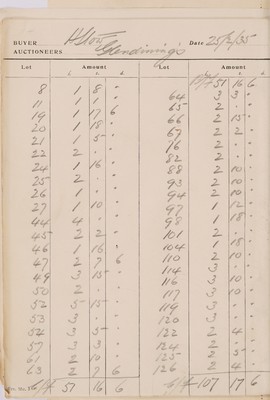 BUYER Date 25/2/35
AUCTIONEERS Glendining
Lot Amount Lot Amount
£ s. d. £ s. d.
51 16 6
8 1 8 . 64 3 3 .
11 1 1 . 65 2 . .
19 1 17 6 66 2 15 .
20 1 18 . 67 2 2 .
21 1 5 . 76 2 . .
22 2 . . 82 2 . .
24 1 16 . 88 2 10 .
25 2 . . 93 2 10 .
26 1 . . 94 2 10 .
27 1 10 . 97 1 12 .
44 4 . . 98 1 18 .
45 2 2 . 101 2 . .
46 1 16 . 104 1 18 .
47 2 7 6 110 2 10 .
49 3 15 . 114 3 . .
50 2 . . 116 3 10 .
52 5 15 . 117 3 10 .
53 3 . . 119 3 . .
54 3 5 . 120 3 . .
57 3 . . 122 2 4 .
61 2 10 . 124 2 . .
63 2 7 6 125 2 5 .
126 2 4 .
57 16 6 107 17 6